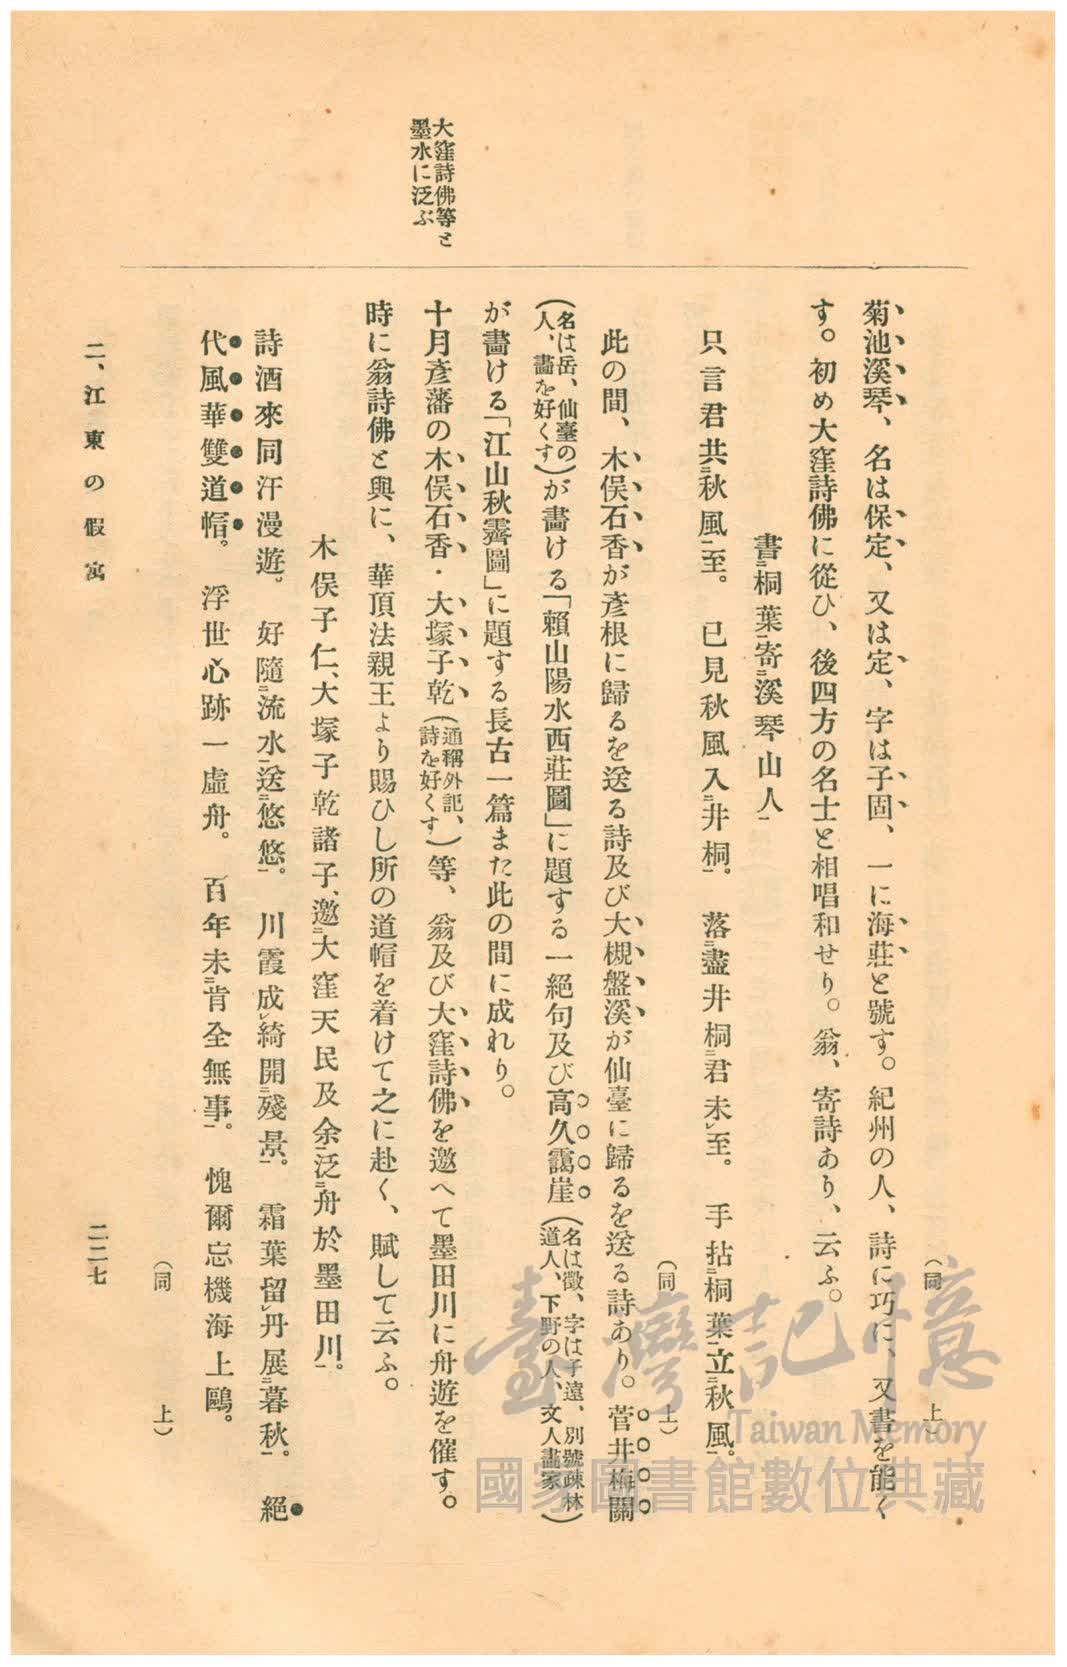 大窪詩佛等と
墨水に泛ぶ
(同　上)
菊池溪琴、名は保定、又は定、字は子固、一に海莊と號す。紀州の人、詩に巧に、又書を能く
す。初め大窪詩佛に從ひ、後四方の名士と相唱和せり。翁、寄詩あり、云ふ。
書㆓桐葉㆒寄㆓溪琴山人㆒
只言君共㆓秋風㆒至。　已見秋風入㆓井桐㆒。　落㆓盡井桐㆒君未㆑至。　手拈㆓桐葉㆒立㆓秋風㆒。
(同　上)
此の間、木俣石香が彥根に歸るを送る詩及び大槻盤溪が仙臺に歸るを送る詩あり。菅井梅關
(名は岳、仙臺の人、畵を好くす)が畵ける「賴山陽水西莊圖」に題する一絕句及び高久靄崖(名は徵、字は子遠、別號疎林道人、下野の人、文人畵家)
が畵ける「江山秋霽圖」に題する長古一篇また此の間に成れり。
十月彥藩の木俣石香・大塚子乾(通稱外記、詩を好くす)等、翁及び大窪詩佛を邀へて墨田川に舟遊を催す。
時に翁詩佛と與に、華頂法親王より賜ひし所の道帽を着けて之に赴く、賦して云ふ。
木俣子仁、大塚子乾諸子、邀㆓大窪天民及余㆒泛㆓舟於墨田川㆒。
詩酒來同汗漫遊。　好隨㆓流水㆒送㆓悠悠㆒。　川霞成㆑綺開㆓殘景㆒。　霜葉留㆑丹展㆓暮秋㆒。　絕
代風華雙道帽。　浮世心跡一虛舟。　百年未㆓肯全無事㆒。　愧爾忘機海上鷗。
(同　上)
二、江東の假寓
二二七
臺灣記憶
Taiwan Memory
國家圖書館數位典藏